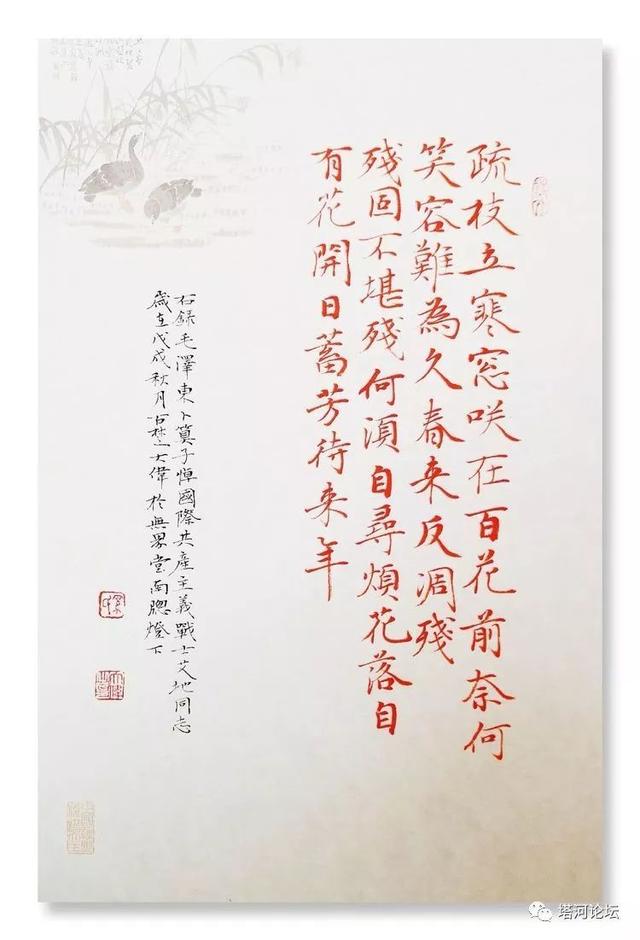 疏枝立寒窓咲在百花前奈何
笑容難為久春来反凋殘
殘固不堪殘何須自尋煩花落自
有花開日蓄芳待来年
右錄毛澤東卜算子悼國際共產主義戰士艾地同志
歲在戊戌秋月古楚大偉於無界堂南牕燈下
塔河论坛